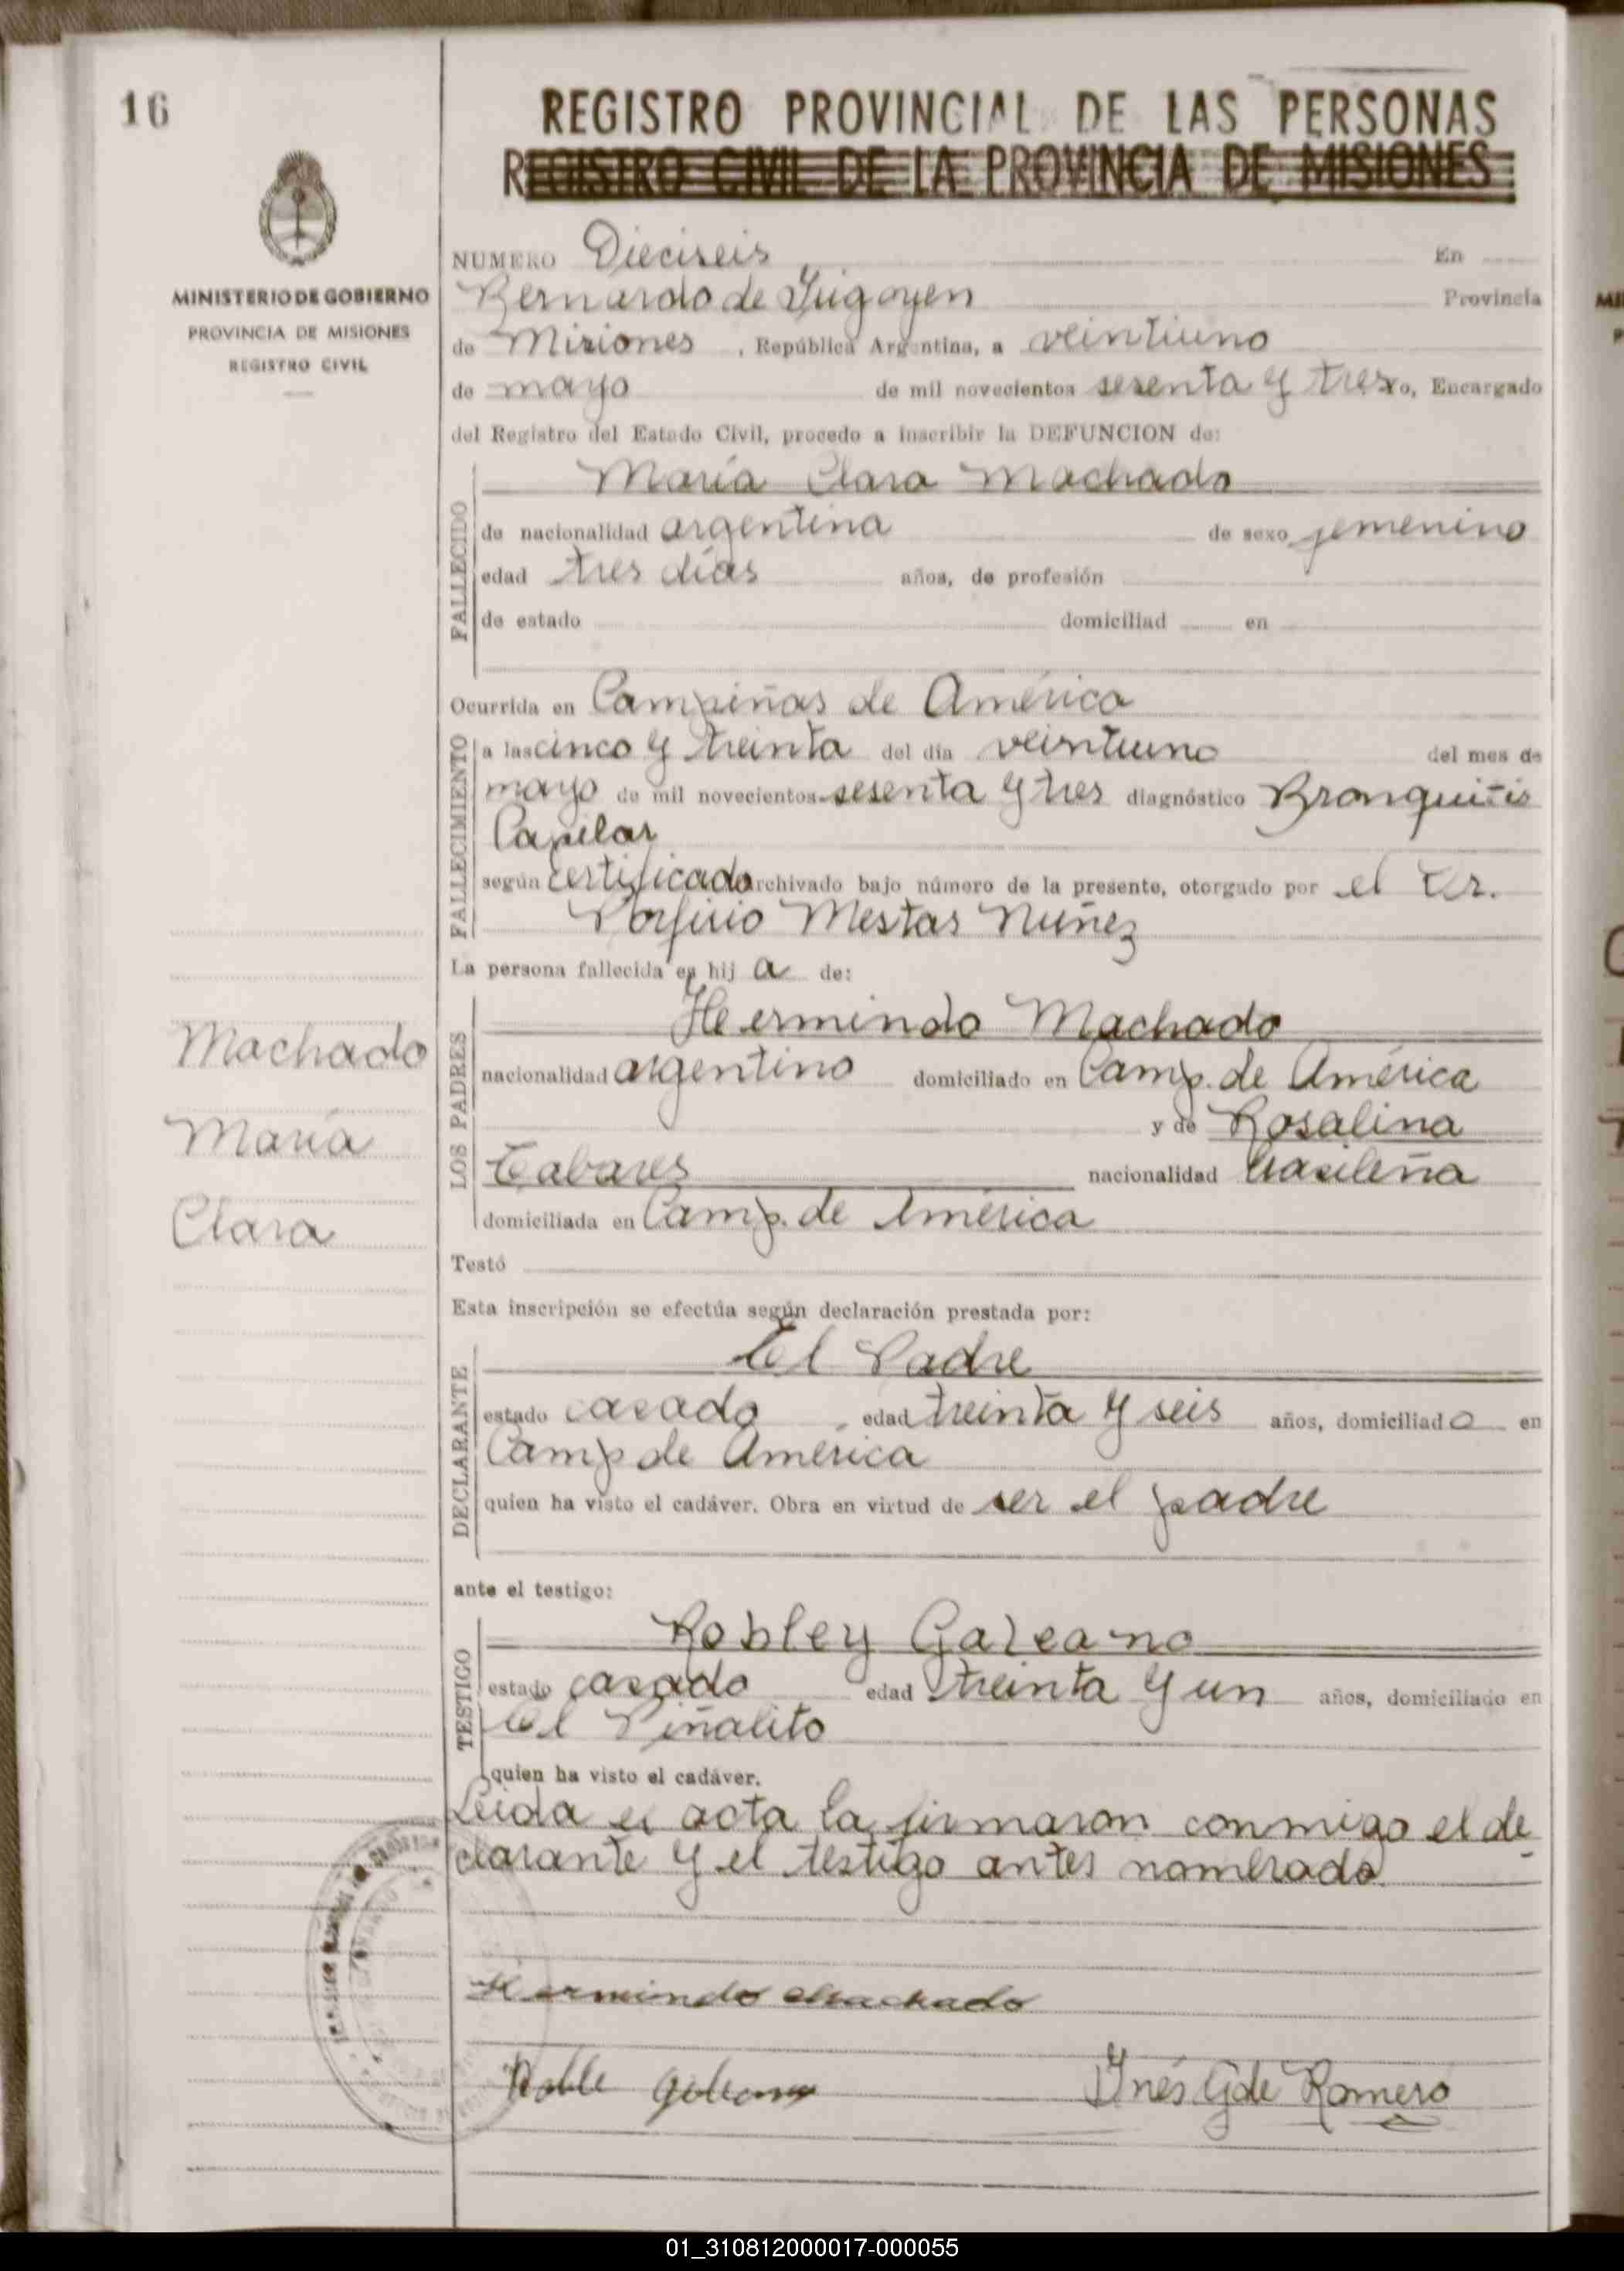 16
REGISTRO PROVINCIAL DE LAS PERSONAS
REGISTRO CIVIL DE LA PROVINCIA DE MISIONES
MINISTERIO DE GOBIERNO
PROVINCIA DE MISIONES
REGISTRO CIVIL
NUMERO Dieciseis En
Bernardo de Yrigoyen Provincia
de Misiones , República Argentina, a veintiuno
de mayo de mil novecientos sesenta y tres yo, Encargado
del Registro del Estado Civil, procedo a inscribir la DEFUNCION de:
FALLECIDO
María Clara Machado
de nacionalidad argentina de sexo femenino
edad tres días años, de profesión
de estado domiciliad en
Ocurrida en Campiñas de América
FALLECIMIENTO
a las cinco y treinta del día veintiuno del mes de
mayo de mil novecientos sesenta y tres diagnóstico Bronquitis
Capilar
según certificado archivado bajo número de la presente, otorgado por el Dr.
Porfirio Mestas Nuñez
La persona fallecida es hij a de:
LOS PADRES
Hermindo Machado
nacionalidad argentino domiciliado en Camp. de América
y de Rosalina
Tabares nacionalidad brasileña
domiciliada en Camp. de América
Machado
María
Clara
Testó
Esta inscripción se efectúa según declaración prestada por:
DECLARANTE
El Padre
estado casado , edad treinta y seis años, domiciliad o en
Camp de América
quien ha visto el cadáver. Obra en virtud de ser el padre
ante el testigo:
TESTIGO
Robley Galeano
estado casado edad treinta y un años, domiciliado en
El Piñalito
quien ha visto el cadáver.
Leida el acta la firmaron conmigo el de
clarante y el testigo antes nombrado.
Hermindo Machado
Roble Galeano Ynés G de Romero
01_310812000017-000055